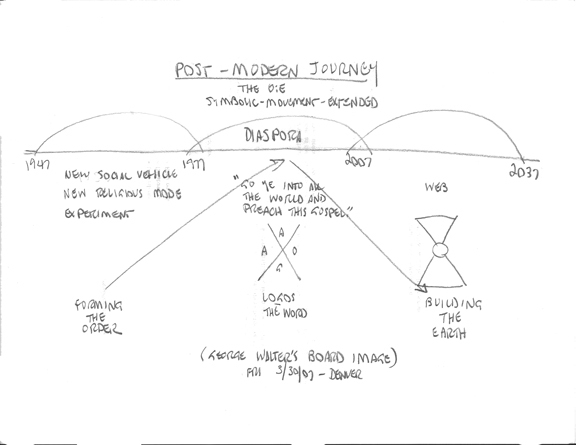 POST-MODERN JOURNEY
THE O:E
SYMBOLIC-MOVEMENT-EXTENDED
DIASPORA
1947
1977
2007
2037
NEW SOCIAL VEHICLE
NEW RELIGIOUS MODE
EXPERIMENT
"GO YE INTO ALL
THE WORLD AND
PREACH THIS GOSPEL"
WEB
A
A O
G
FORMING
THE
ORDER
LOGOS
THE WORD
BUILDING
THE
EARTH
(GEORGE WALTER'S BOARD IMAGE)
FRI 3/30/07 - DENVER